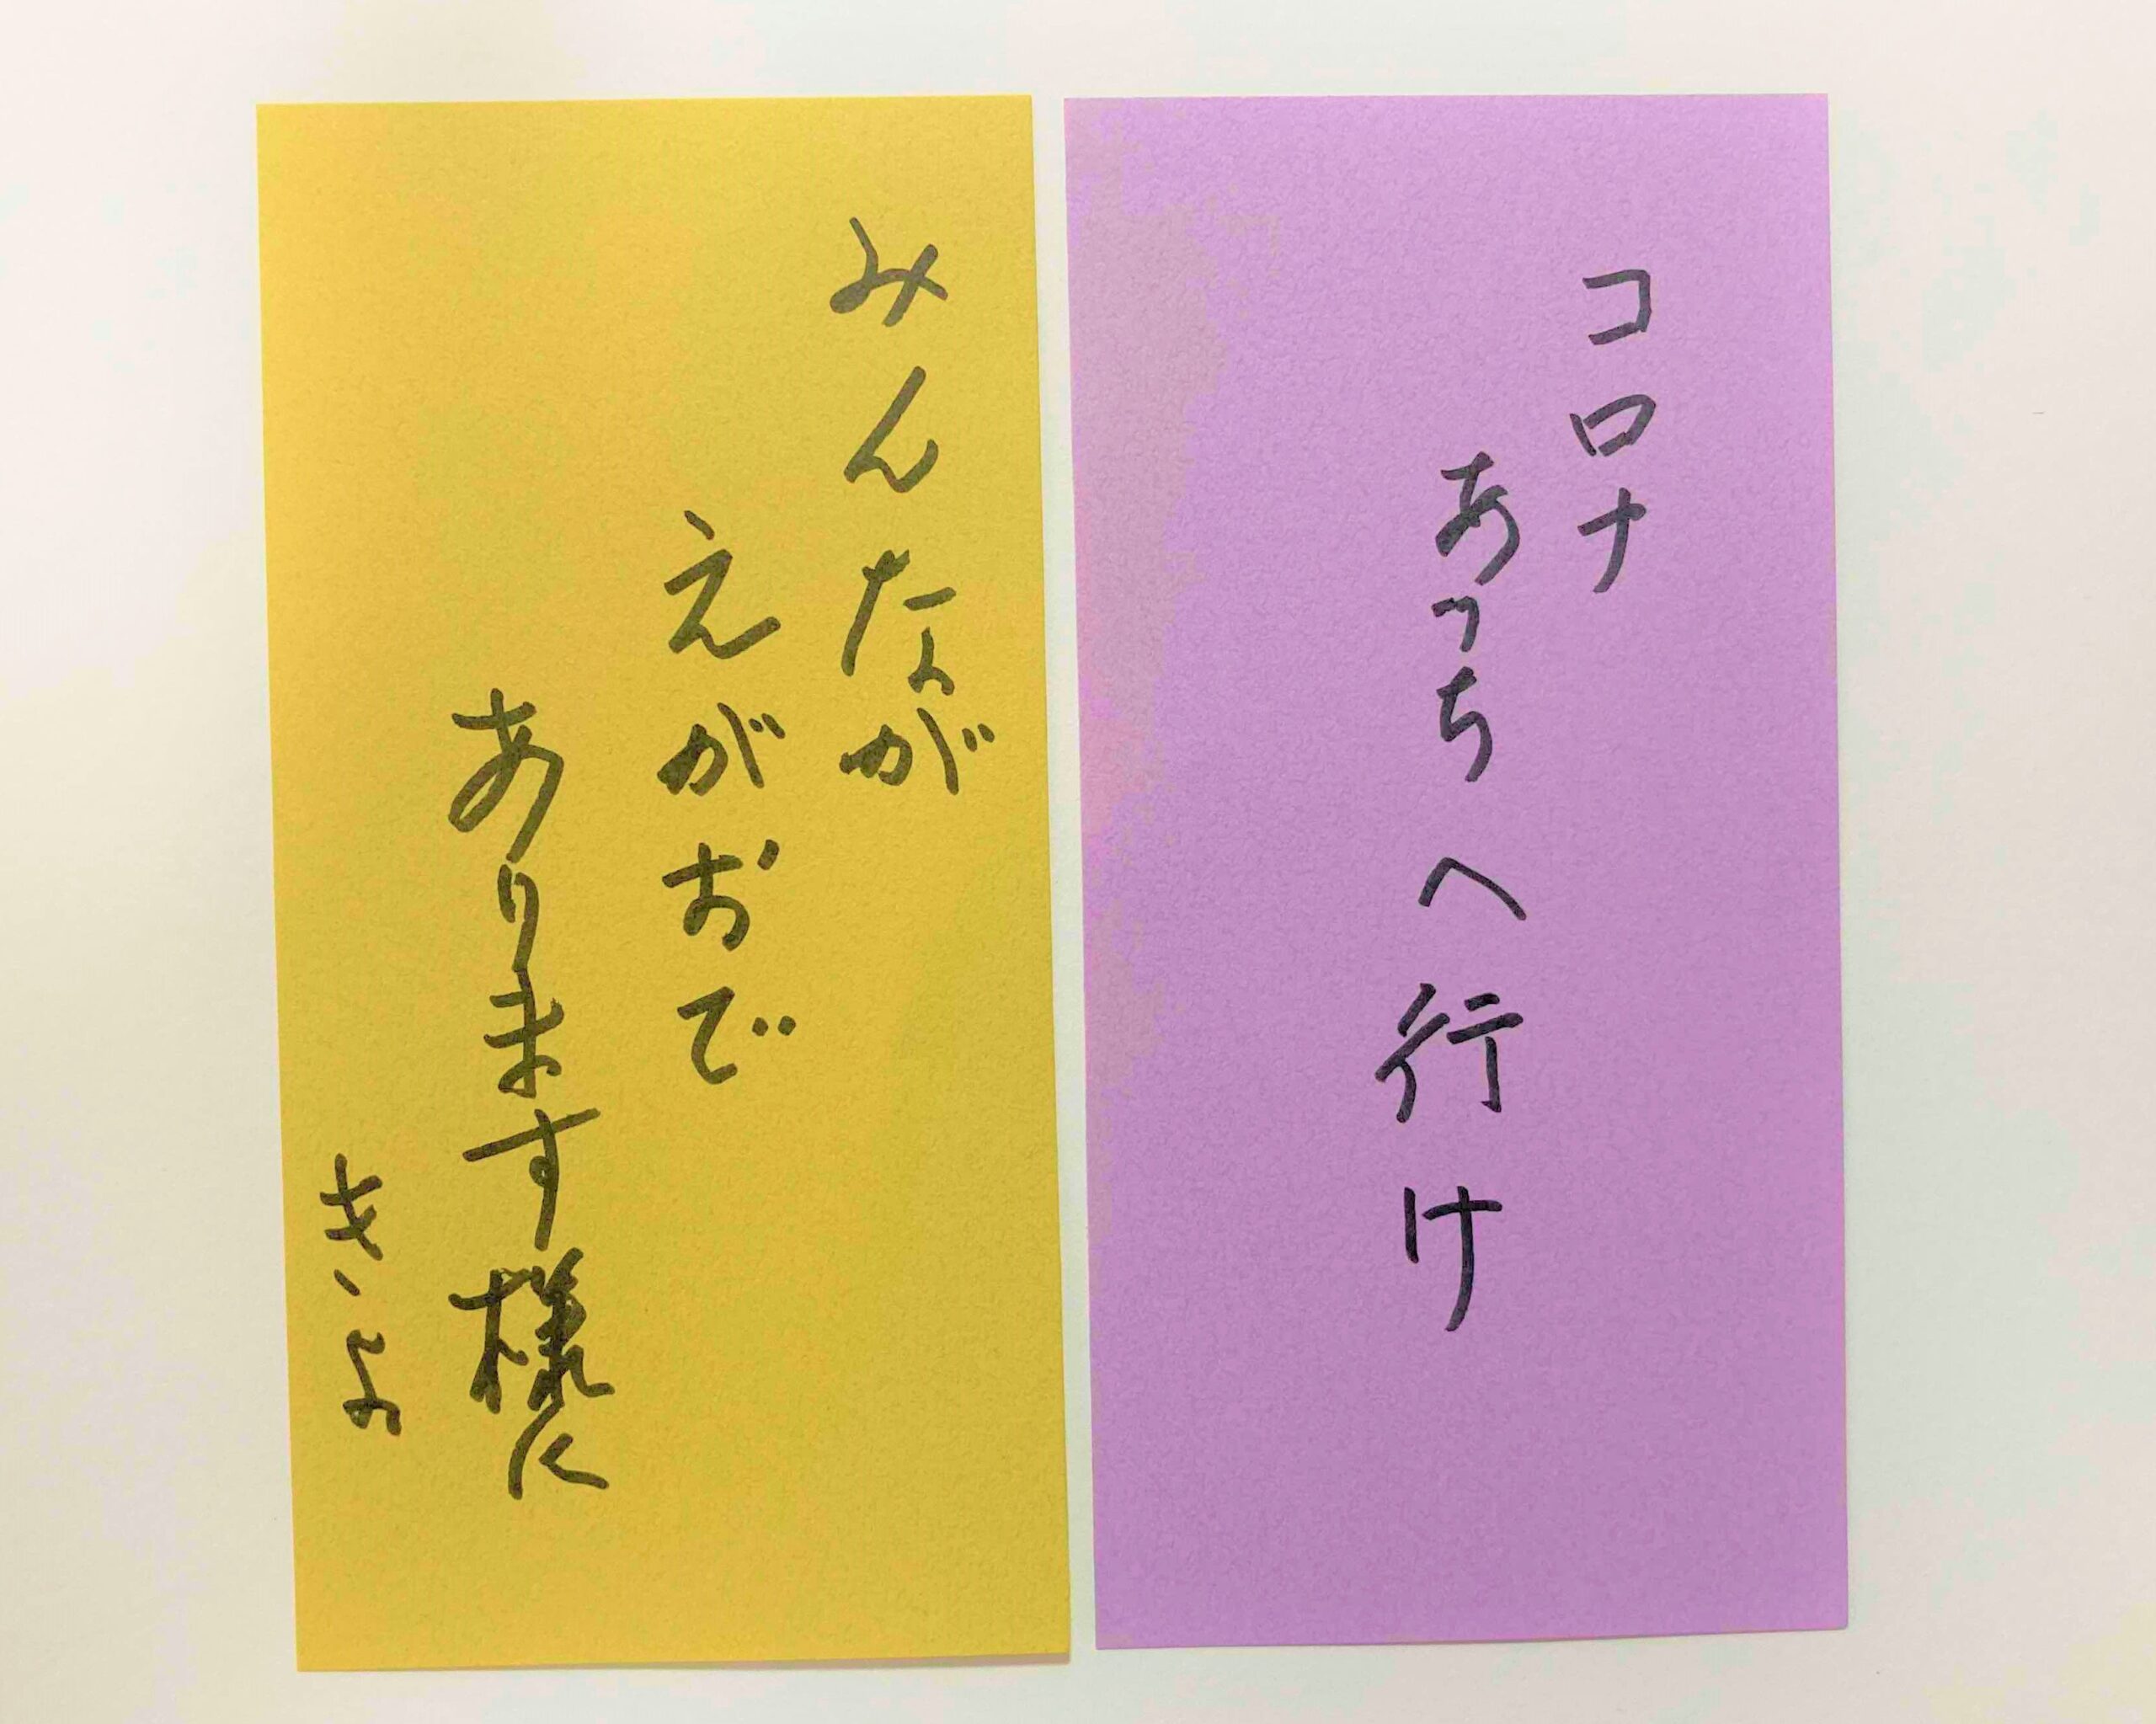 コロナ
あっちへ行け
みんなが
えがおで
あります様に
きよ